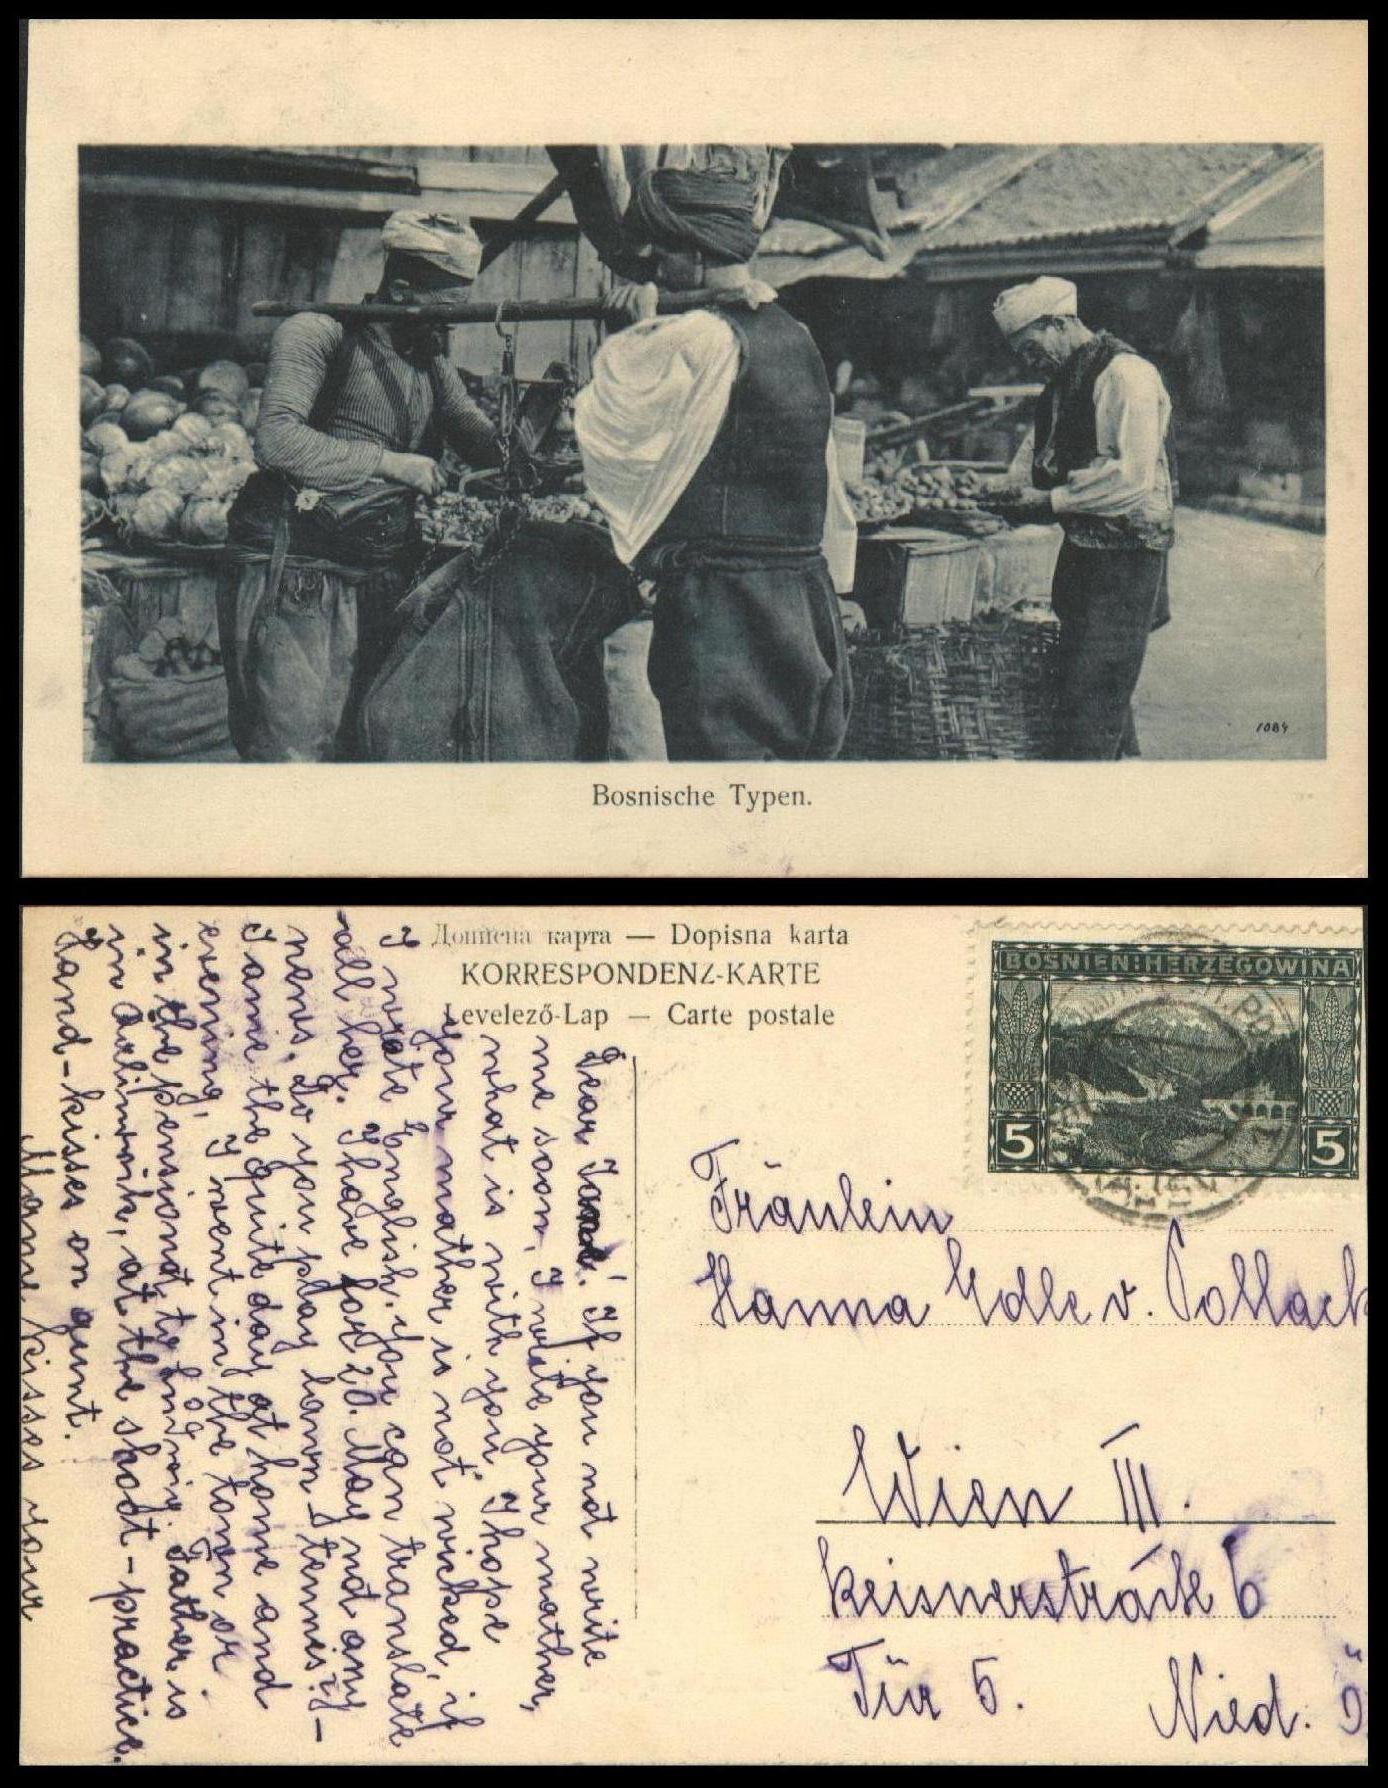 1084
Bosnische Typen.
Дописна карта — Dopisna karta
KORRESPONDENZ-KARTE
Levelező-Lap — Carte postale
BOSNIEN:HERZEGOWINA
5 5
Dear If you not write
me soon, I write your mother,
what is with you. I hope
your mother is not wicked, if
I wrote English. you can translate
all her. I have for 20. May not any
news. Do you play lawn-tennis? I-
I ame the quite day at home and
evening, I went in the town or
in the pensionat, to Father is
in at the shoot-practice.
Hand-kisses on aunt.
Many kisses your
Fräulein
Hanna Edle v. Pollack
Wien III.
6
Tür 5.
Nied. Ö